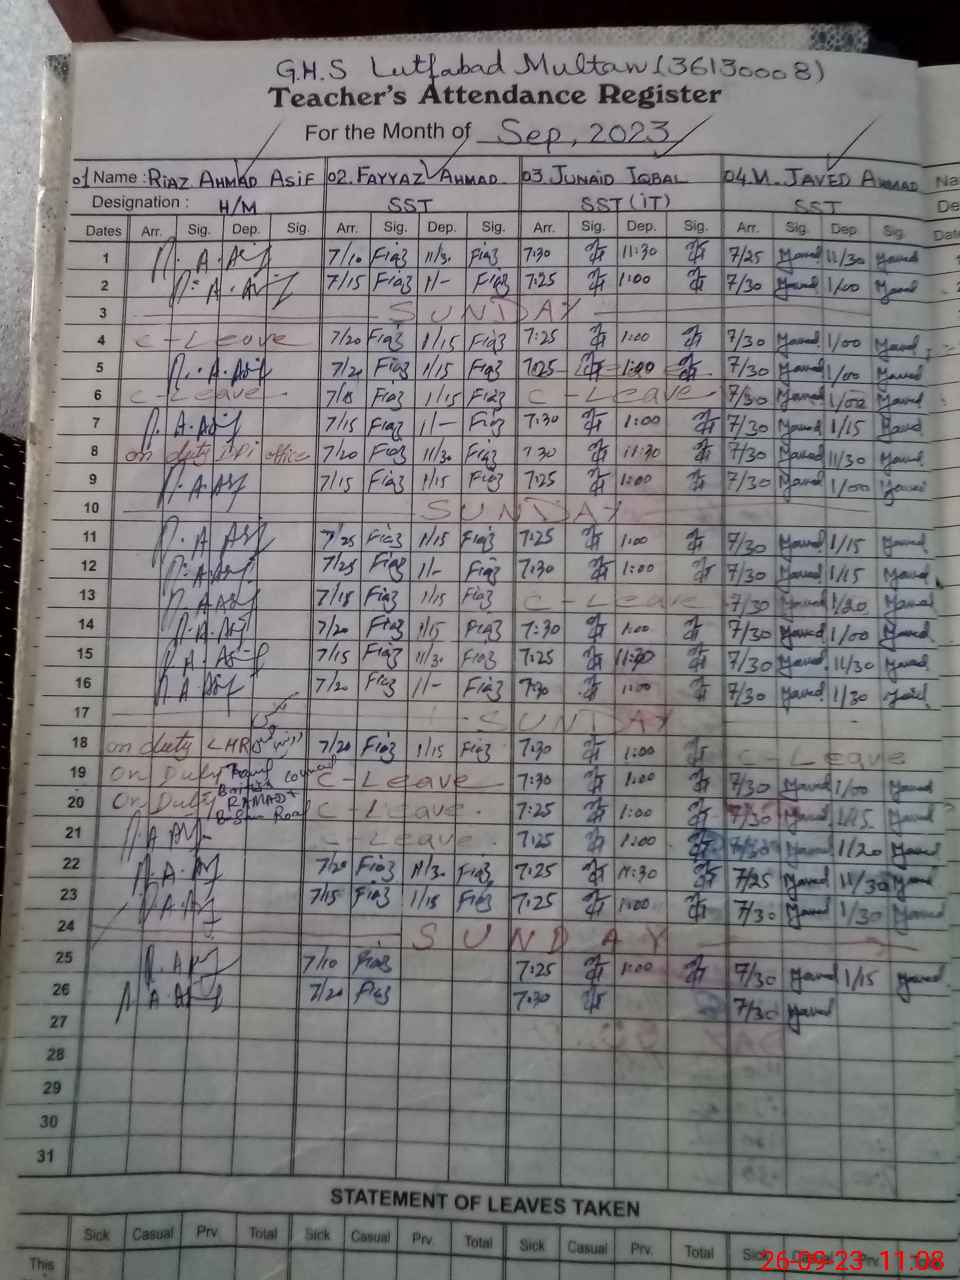 G.H.S Lutfabad Multan (36130008)
Teacher's Attendance Register
For the Month of Sep, 2023
01 Name : RIAZ AHMAD ASIF 02. FAYYAZ AHMAD 03. JUNAID IQBAL 04. M. JAVED AHMAD Na
Designation : H/M SST SST (IT) SST De
Dates Arr. Sig. Dep. Sig. Arr. Sig. Dep. Sig. Arr. Sig. Dep. Sig. Arr. Sig. Dep. Sig. Date
1 R.A.Asif 7/10 Fiaz 11/30 Fiaz 7:30 11:30 7/25 Javed 11/30 Javed
2 R.A.Asif 7/15 Fiaz 1/- Fiaz 7:25 1:00 7/30 Javed 1/00 Javed
3 SUNDAY
4 C-Leave 7/20 Fiaz 1/15 Fiaz 7:25 1:00 7/30 Javed 1/00 Javed
5 R.A.Asif 7/20 Fiaz 1/15 Fiaz 7:25 1:00 7/30 Javed 1/00 Javed
6 C-Leave Fiaz 1/15 Fiaz C-Leave 7/30 Javed 1/00 Javed
7 R.A.Asif 7/15 Fiaz 1/- Fiaz 7:30 1:00 7/30 Javed 1/15 Javed
8 on duty office 7/20 Fiaz 11/30 Fiaz 7:30 11:30 7/30 Javed 11/30 Javed
9 R.A.Asif 7/15 Fiaz 1/15 Fiaz 7:25 1:00 7/30 Javed 1/00 Javed
10 SUNDAY
11 R.A.Asif 7/25 Fiaz 1/15 Fiaz 7:25 1:00 7/30 Javed 1/15 Javed
12 R.A.Asif 7/25 Fiaz 1/- Fiaz 7:30 1:00 7/30 Javed 1/15 Javed
13 R.A.Asif 7/15 Fiaz 1/15 Fiaz C-Leave 7/30 Javed 1/20 Javed
14 R.A.Asif 7/20 Fiaz 1/15 Fiaz 7:30 1:00 7/30 Javed 1/00 Javed
15 R.A.Asif 7/15 Fiaz 11/30 Fiaz 7:25 11:30 7/30 Javed 11/30 Javed
16 R.A.Asif 7/20 Fiaz 1/- Fiaz 7:30 1:00 7/30 Javed 1/30 Javed
17 SUNDAY
18 on duty LHR 7/20 Fiaz 1/15 Fiaz 7:30 1:00 C-Leave
19 On Duty C-Leave 7:30 1:00 7/30 Javed 1/00 Javed
20 On Duty RAMADA C-Leave 7:25 1:00 7/30 Javed 1/15 Javed
21 R.A.Asif C-Leave 7:25 1:00 7/30 Javed 1/20 Javed
22 R.A.Asif 7/20 Fiaz 11/30 Fiaz 7:25 11:30 7/25 Javed 11/30 Javed
23 R.A.Asif 7/15 Fiaz 1/15 Fiaz 7:25 1:00 7/30 Javed 1/30 Javed
24 SUNDAY
25 R.A.Asif 7/10 Fiaz 7:25 1:00 7/30 Javed 1/15 Javed
26 R.A.Asif 7/20 Fiaz 7:30 7/30 Javed
27
28
29
30
31
STATEMENT OF LEAVES TAKEN
Sick Casual Prv. Total Sick Casual Prv. Total Sick Casual Prv. Total Sick
This
26-09-23 11:08